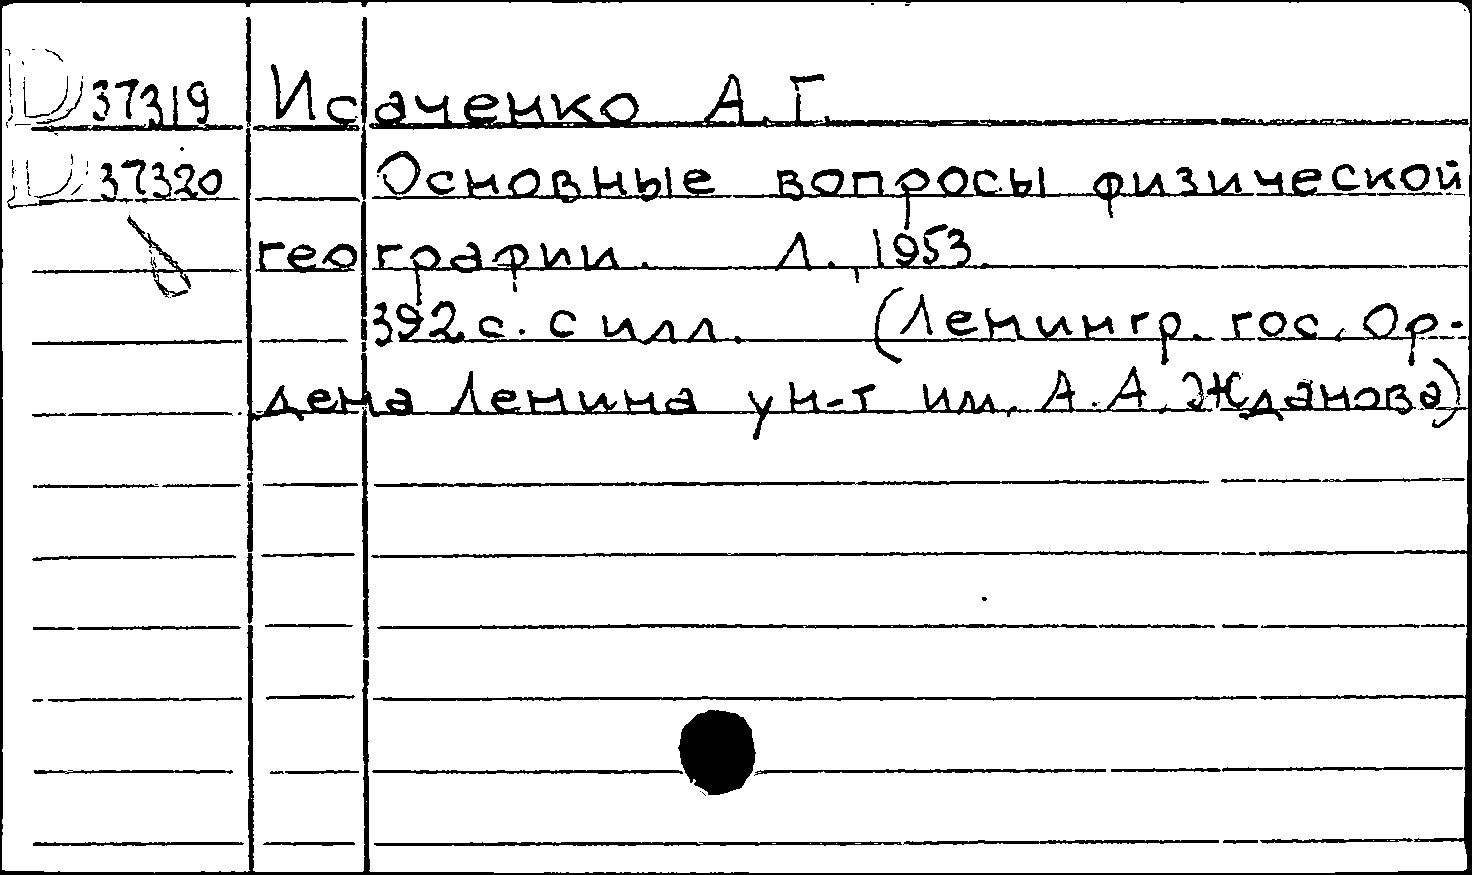 D 37319 Исаченко А.Г.
D 37320 Основные вопросы физической
географии. Л., 1953.
392 с. с илл. (Ленингр. гос. Ор-
дена Ленина ун-т им. А.А. Жданова)